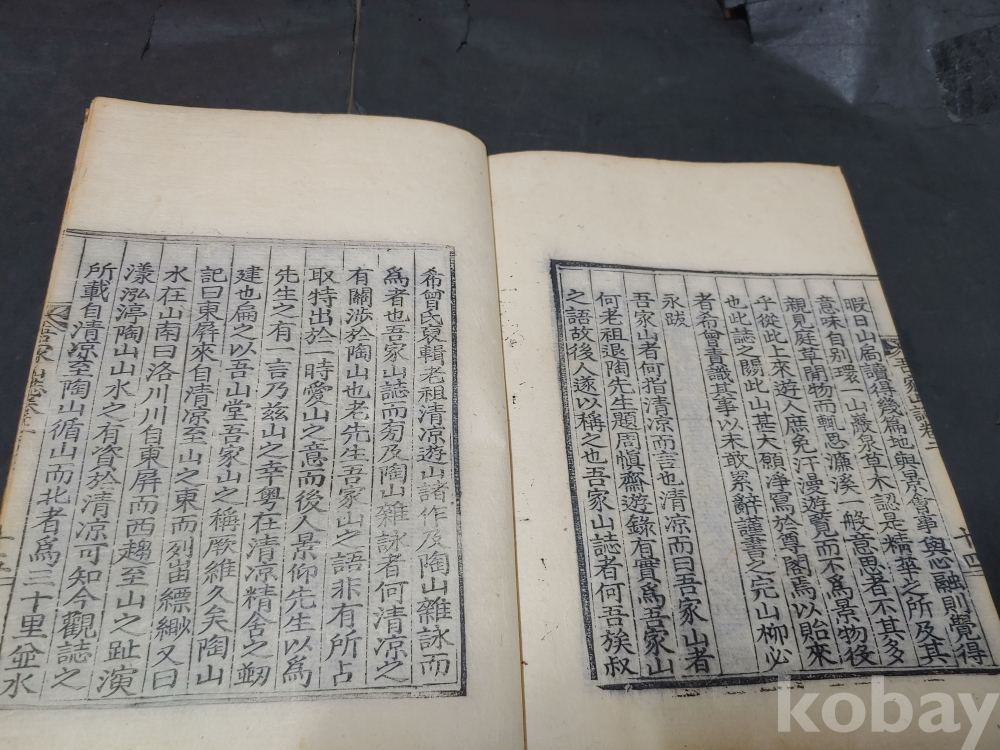 暇日山扃讀得幾篇地與景會事與心融則覺得
意味自別環一山巖泉草木認是精華之所及其
親見庭草開物而輒思濂溪一般意思者不其多
乎從此上來遊人庶免汗漫遊覽而不爲景物後
也此誌之關此山甚大願淨寫於尊閣焉以貽來
者希曾責識其事以未敢累辭謹書之完山柳必
永跋
吾家山者何指清凉而言也清凉而曰吾家山者
何老祖退陶先生題周愼齋遊錄有實爲吾家山
之語故後人遂以稱之也吾家山誌者何吾族叔
吾家山誌卷
十四
希曾氏裒輯老祖清凉遊山諸作及陶山雜詠而
爲者也吾家山誌而旁及陶山雜詠者何清凉之
有關涉於陶山也老先生吾家山之語非有所占
取特出於一時愛山之意而後人景仰先生以爲
先生之有一言乃玆山之幸粤在清凉精舍之刱
建也扁之以吾山堂吾家山之稱厥維久矣陶山
記曰東屏來自清凉至山之東而列岫縹緲又曰
水在山南曰洛川川自東屏而西趨至山之趾演
漾泓渟陶山山水之有資於清凉可知今觀誌之
所載自清凉至陶山循山而北者爲三十里並水
吾家山誌卷